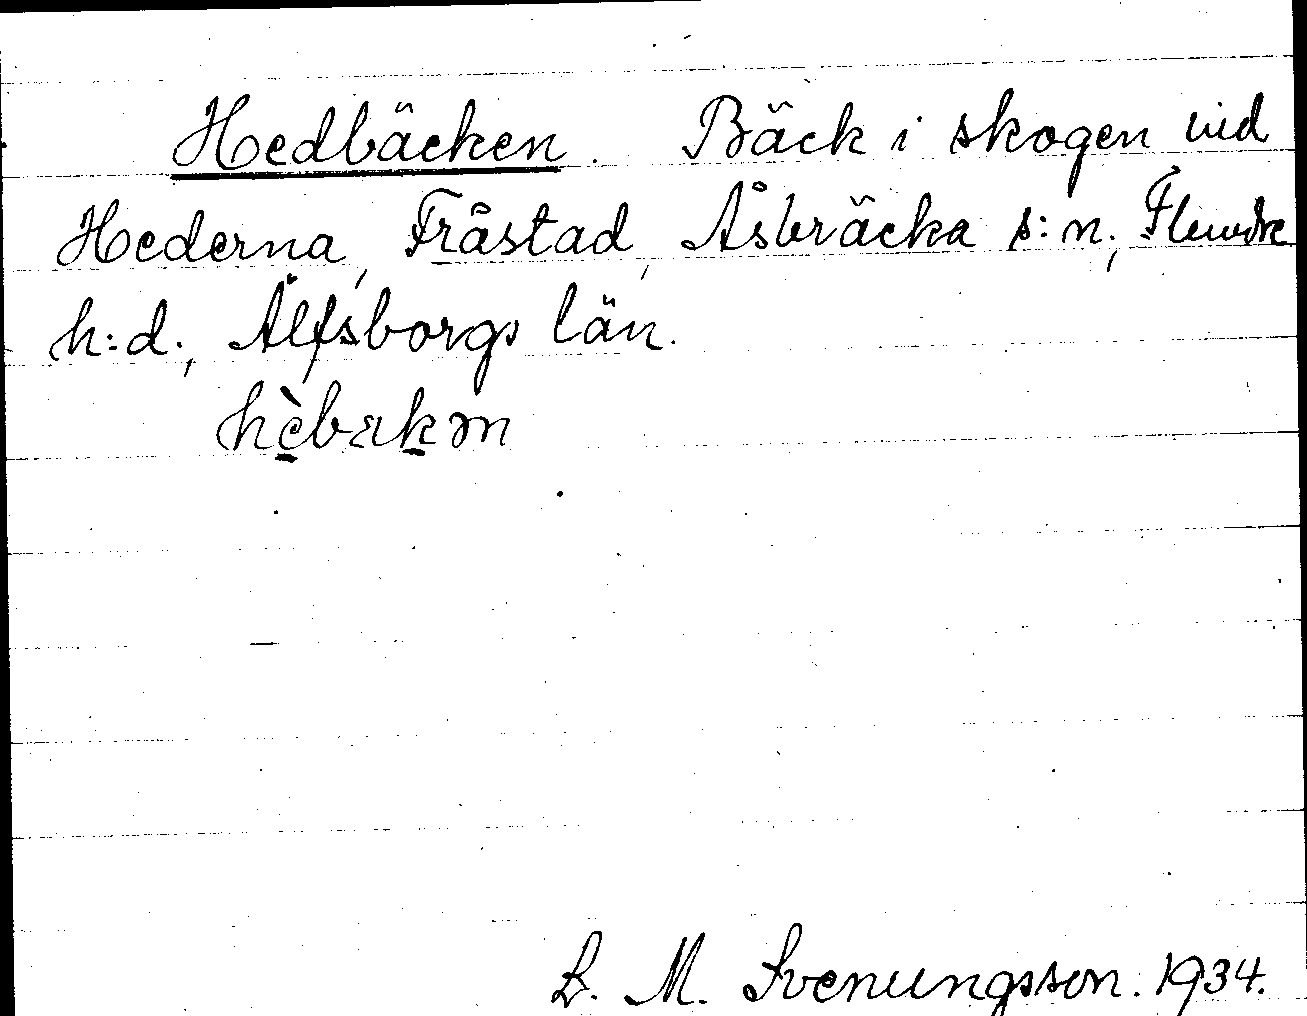 Hedbäcken. Bäck i skogen vid
Hederna, Fråstad, Åsbräcka s:n, Flundre
h:d., Älfsborgs län.
hèbækən
L. M. Svenungsson. 1934.